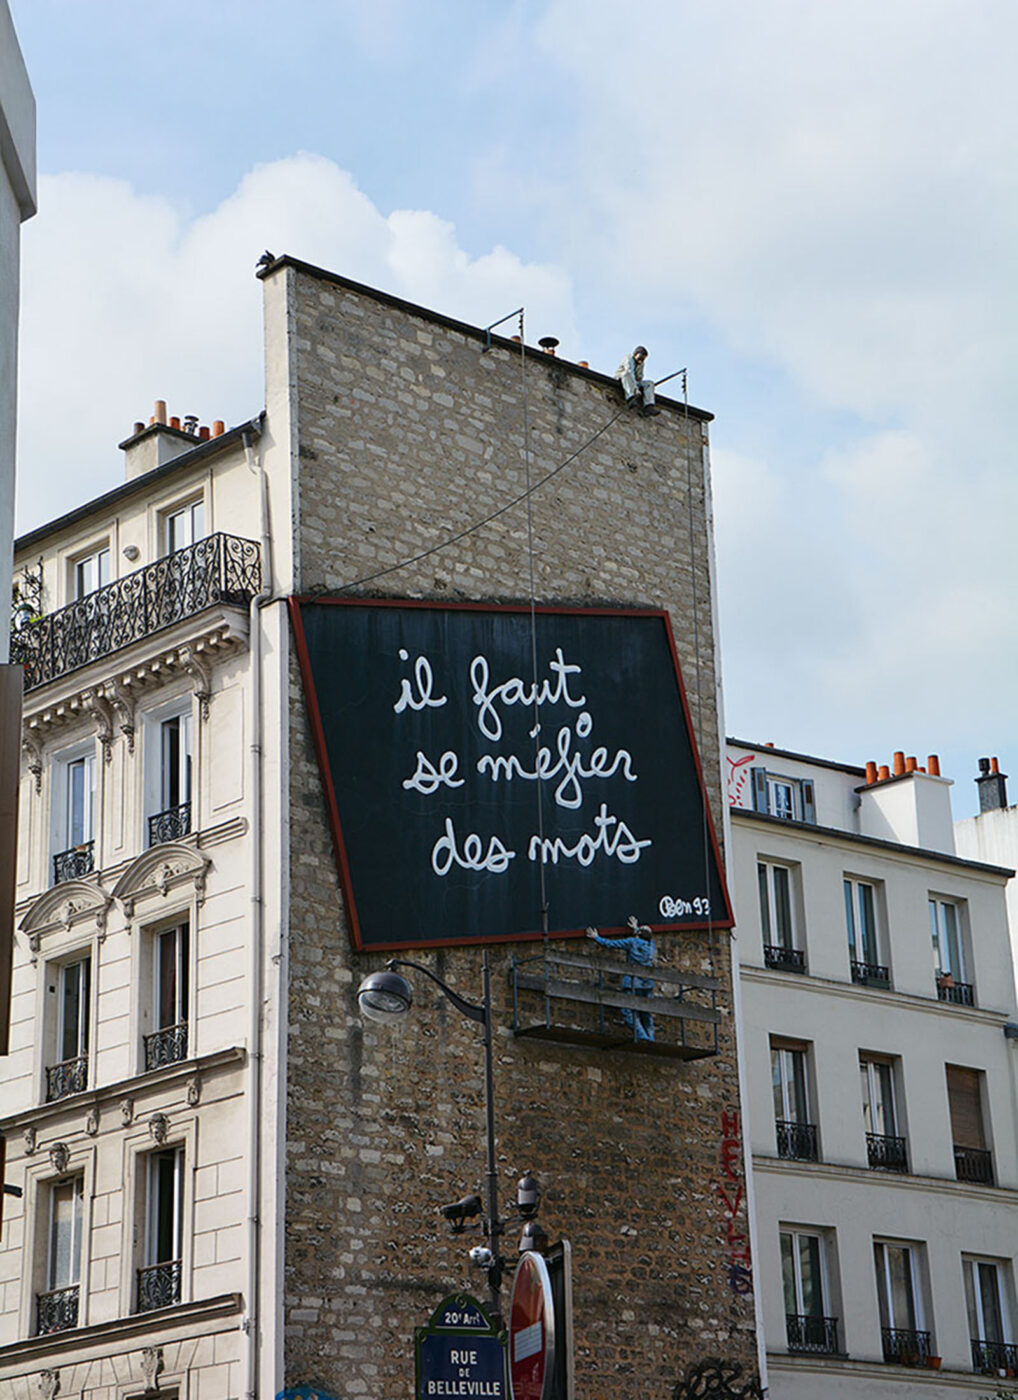 il faut
se méfier
des mots
Ben 93
20e Arrt
RUE
DE
BELLEVILLE